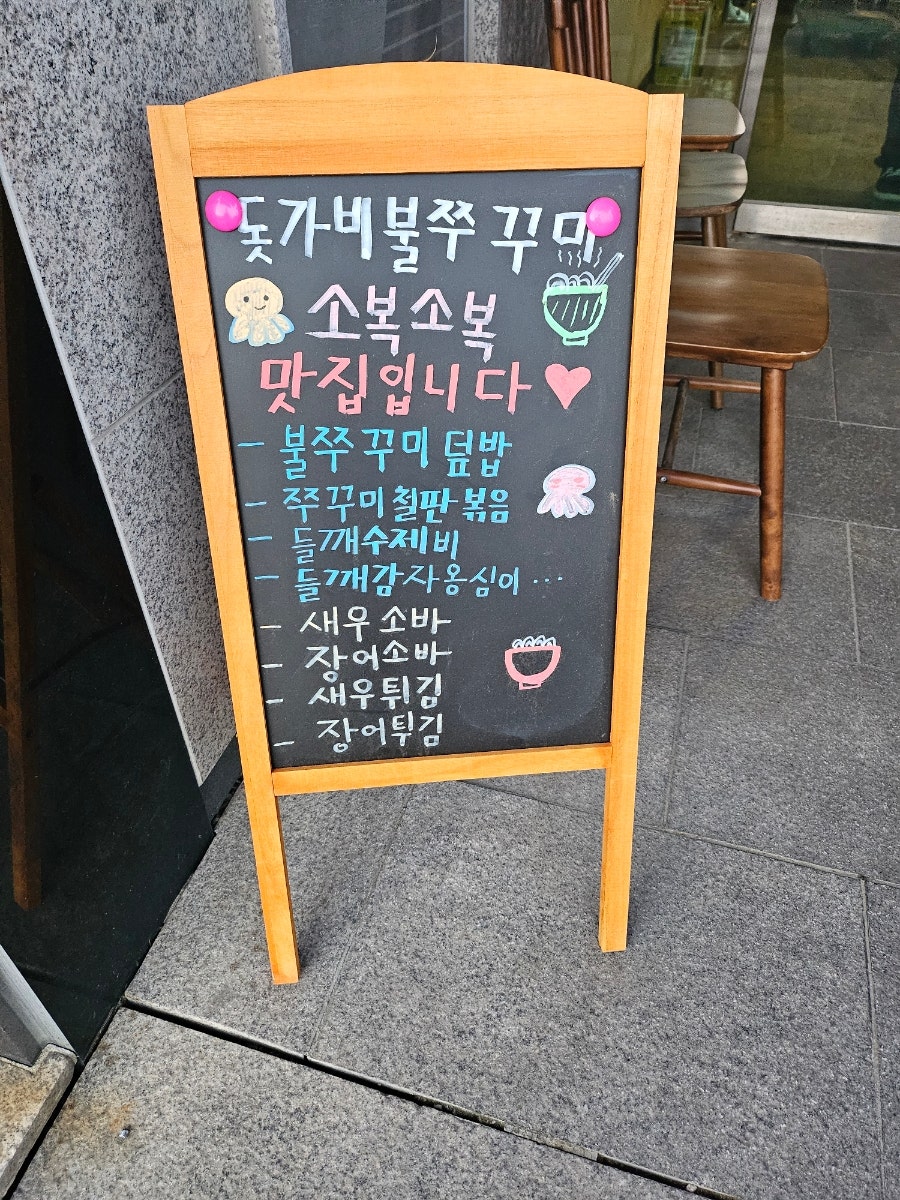 돗가비불쭈꾸미
소복소복
맛집입니다
- 불쭈꾸미 덮밥
- 쭈꾸미철판볶음
- 들깨수제비
- 들깨감자옹심이 ...
- 새우소바
- 장어소바
- 새우튀김
- 장어튀김